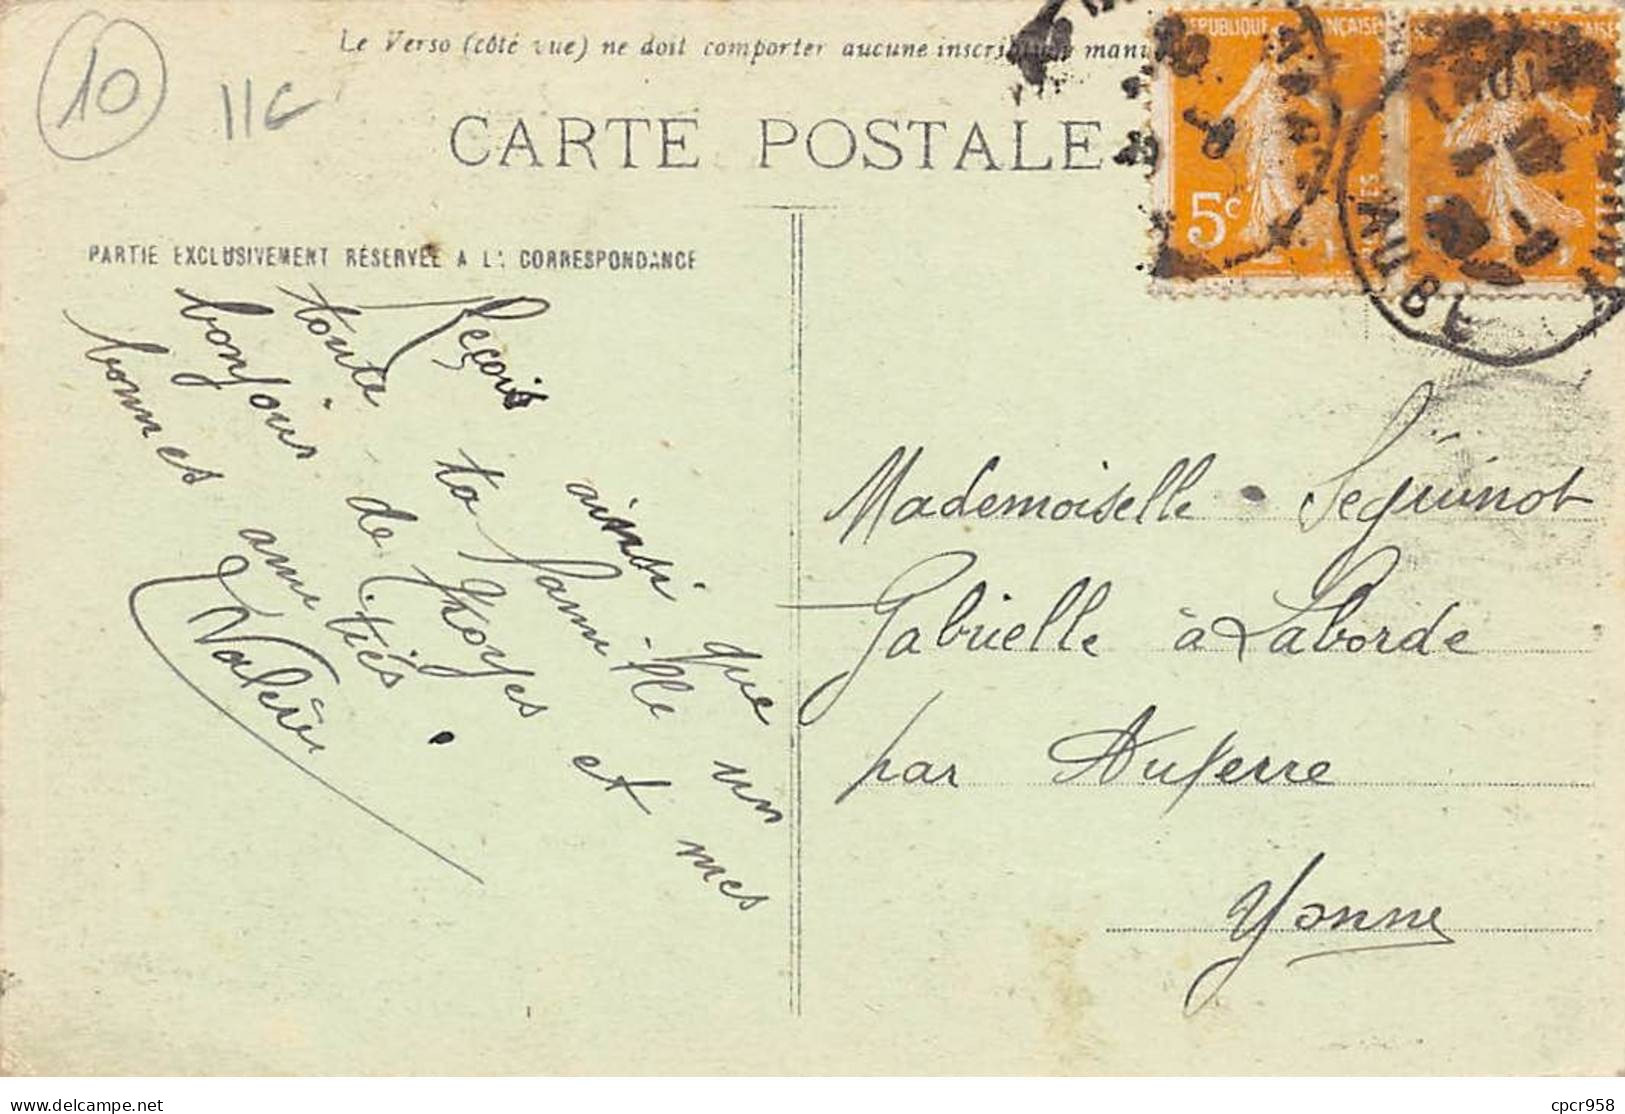 10
11C
Le Verso (côté vue) ne doit comporter aucune inscription manu
CARTE POSTALE
REPUBLIQUE FRANÇAISE
5c
AUBE
PARTIE EXCLUSIVEMENT RÉSERVÉE A LA CORRESPONDANCE
Reçois ainsi que
toute ta famille un
bonjour de Troyes et mes
bonnes amitiés.
Valérie
Mademoiselle Séguinot
Gabrielle à Laborde
par Auxerre
Yonne
delcampe.net
cpcr958